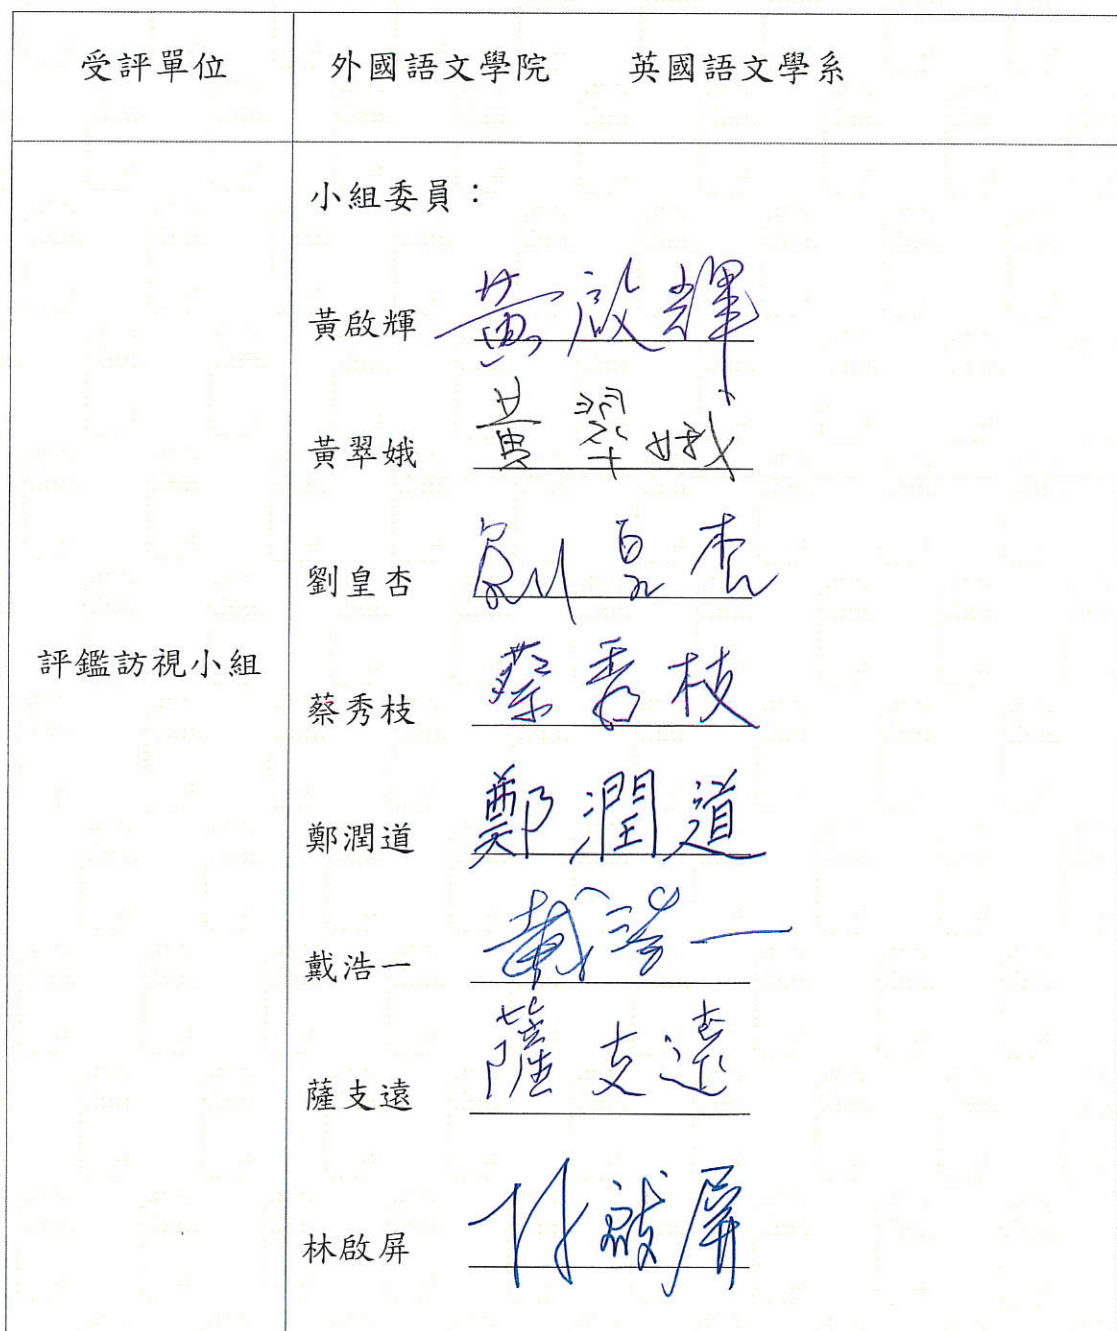 受評單位 外國語文學院 英國語文學系
小組委員：
黃啟輝 黃啟輝
黃翠娥 黃翠娥
劉皇杏 劉皇杏
評鑑訪視小組
蔡秀枝 蔡秀枝
鄭潤道 鄭潤道
戴浩一 戴浩一
薩支遠 薩支遠
林啟屏 林啟屏